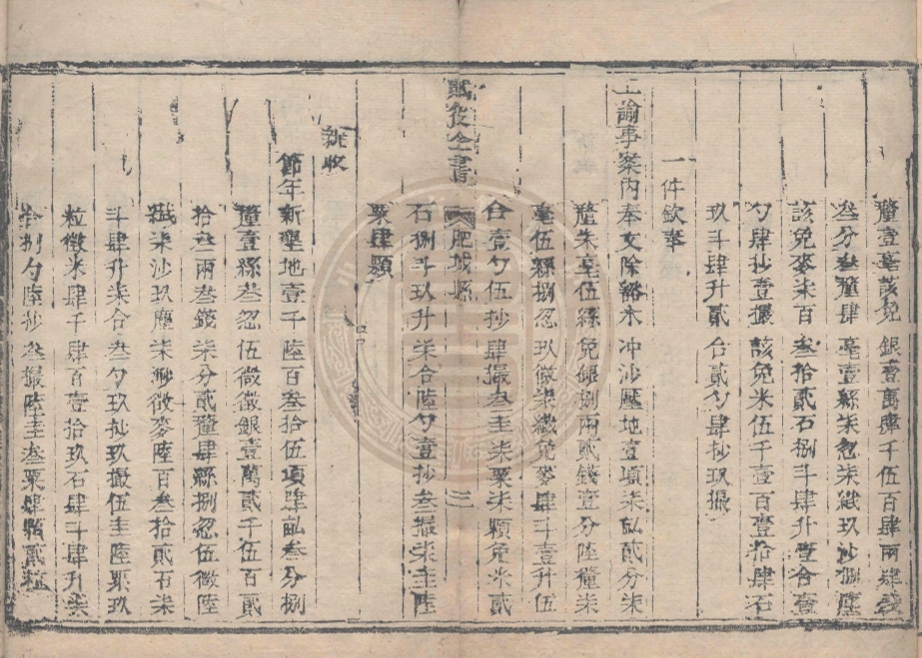 釐壹毫該免銀壹萬肆千伍百肆兩肆錢
叁分叁釐肆毫壹絲柒忽柒纖玖沙捌塵
該免麥柒百叁拾貳石捌斗肆升壹合壹
勺肆抄壹撮該免米伍千壹百壹拾肆石
玖斗肆升貳合貳勺肆抄玖撮
一件欽奉
上諭事案內奉文除豁水冲沙壓地壹項柒畝貳分柒
釐朱毫伍絲免銀捌兩貳錢壹分陸釐柒
毫伍絲捌忽玖微柒纖免麥肆斗壹升伍
合壹勺伍抄肆撮叁圭柒粟柒顆免米貳
賦役全書 肥城縣 三
石捌斗玖升柒合陸勺壹抄叁撮柒圭陸
粟肆顆
新收
節年新墾地壹千陸百叁拾伍項肆畝叁分捌
釐壹絲叁忽伍微徵銀壹萬貳千伍百貳
拾叁兩叁錢柒分貳釐肆絲捌忽伍微陸
纖柒沙玖塵柒渺徵麥陸百叁拾貳石柒
斗肆升柒合叁勺玖抄玖撮伍圭陸粟玖
粒徵米肆千肆百壹拾玖石肆斗肆升柒
合捌勺陸抄叁撮陸圭叁粟肆顆貳粒